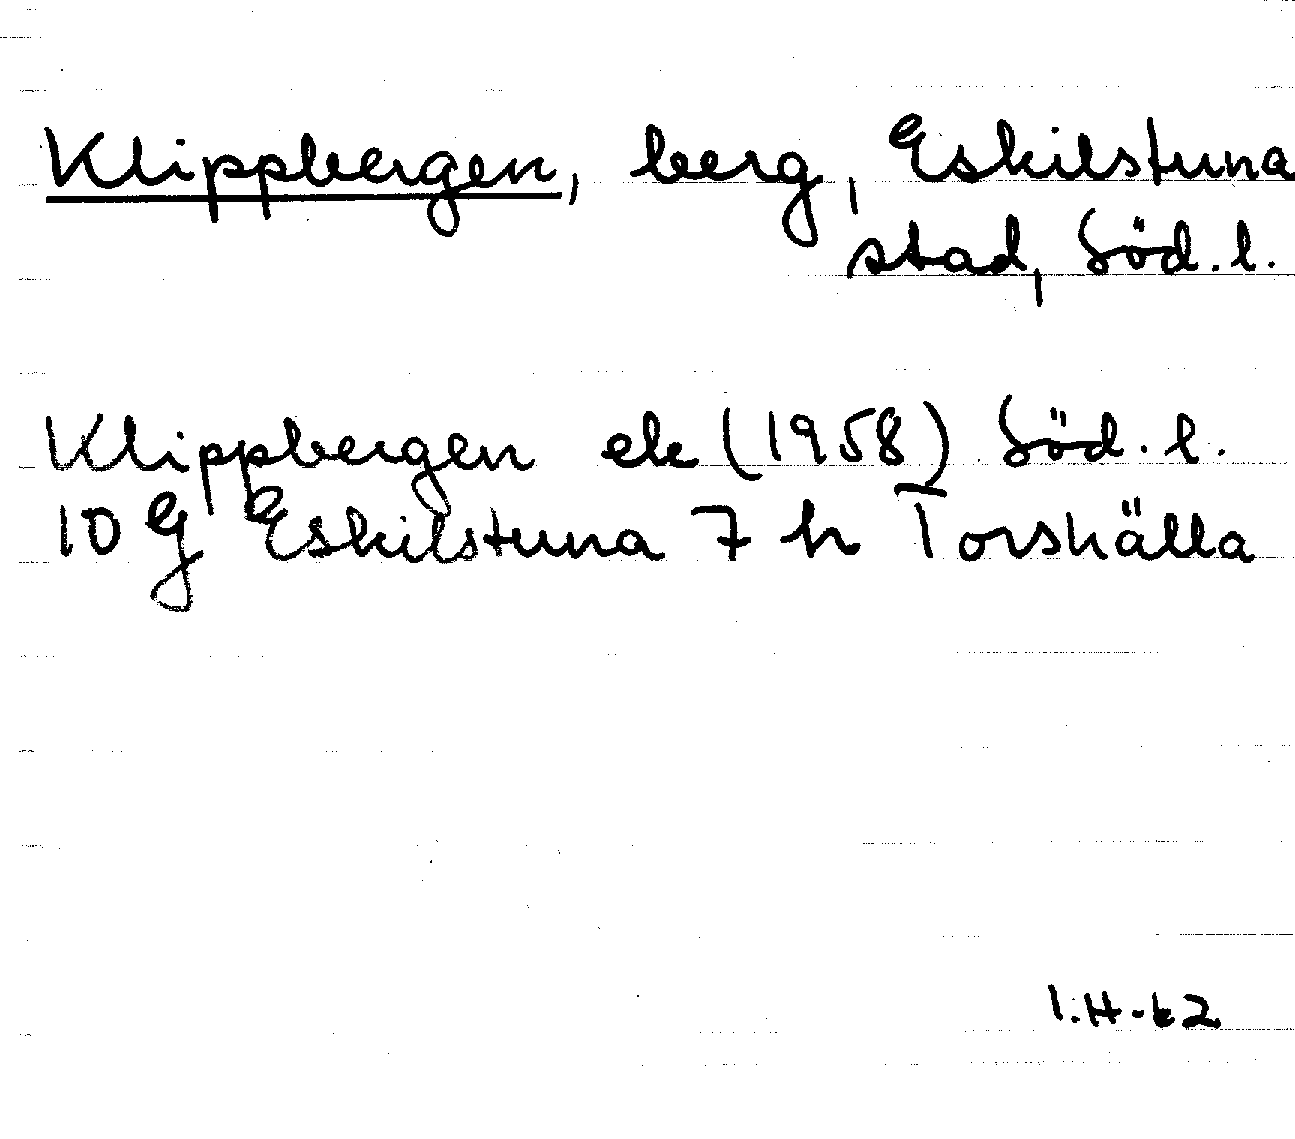 Klippbergen, berg, Eskilstuna
stad, Söd. l.
Klippbergen ek (1958) Söd. l.
10 G Eskilstuna 7 h Torshälla
I.H-62